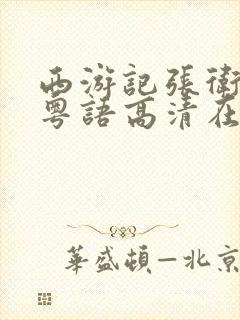 西游記張衛
粵語高清在
華盛頓—北京